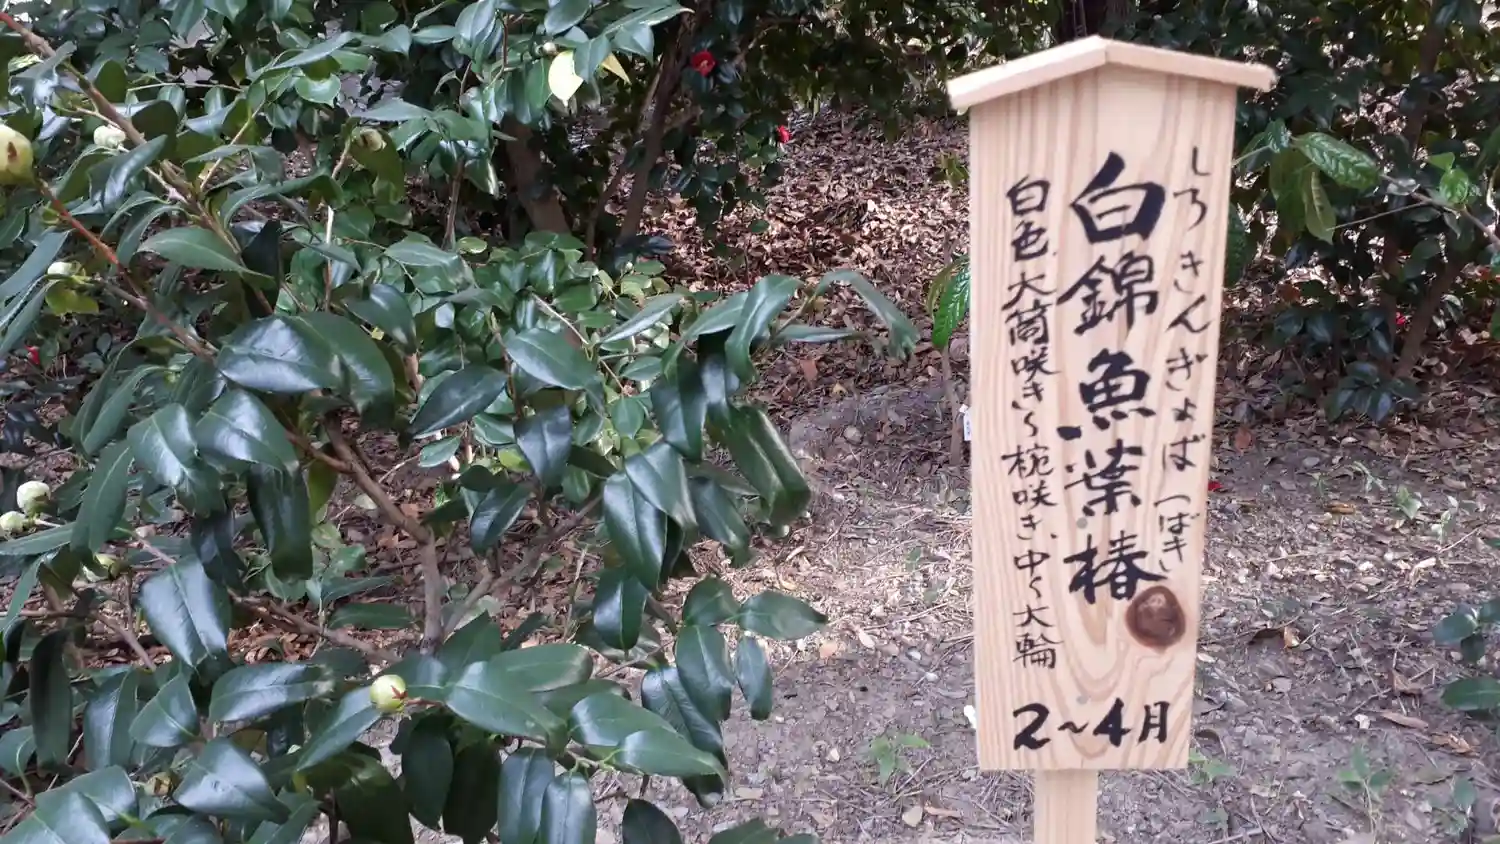 しろきんぎょば つばき
白錦魚葉椿
白色、大筒咲き〜椀咲き、中〜大輪
2~4月